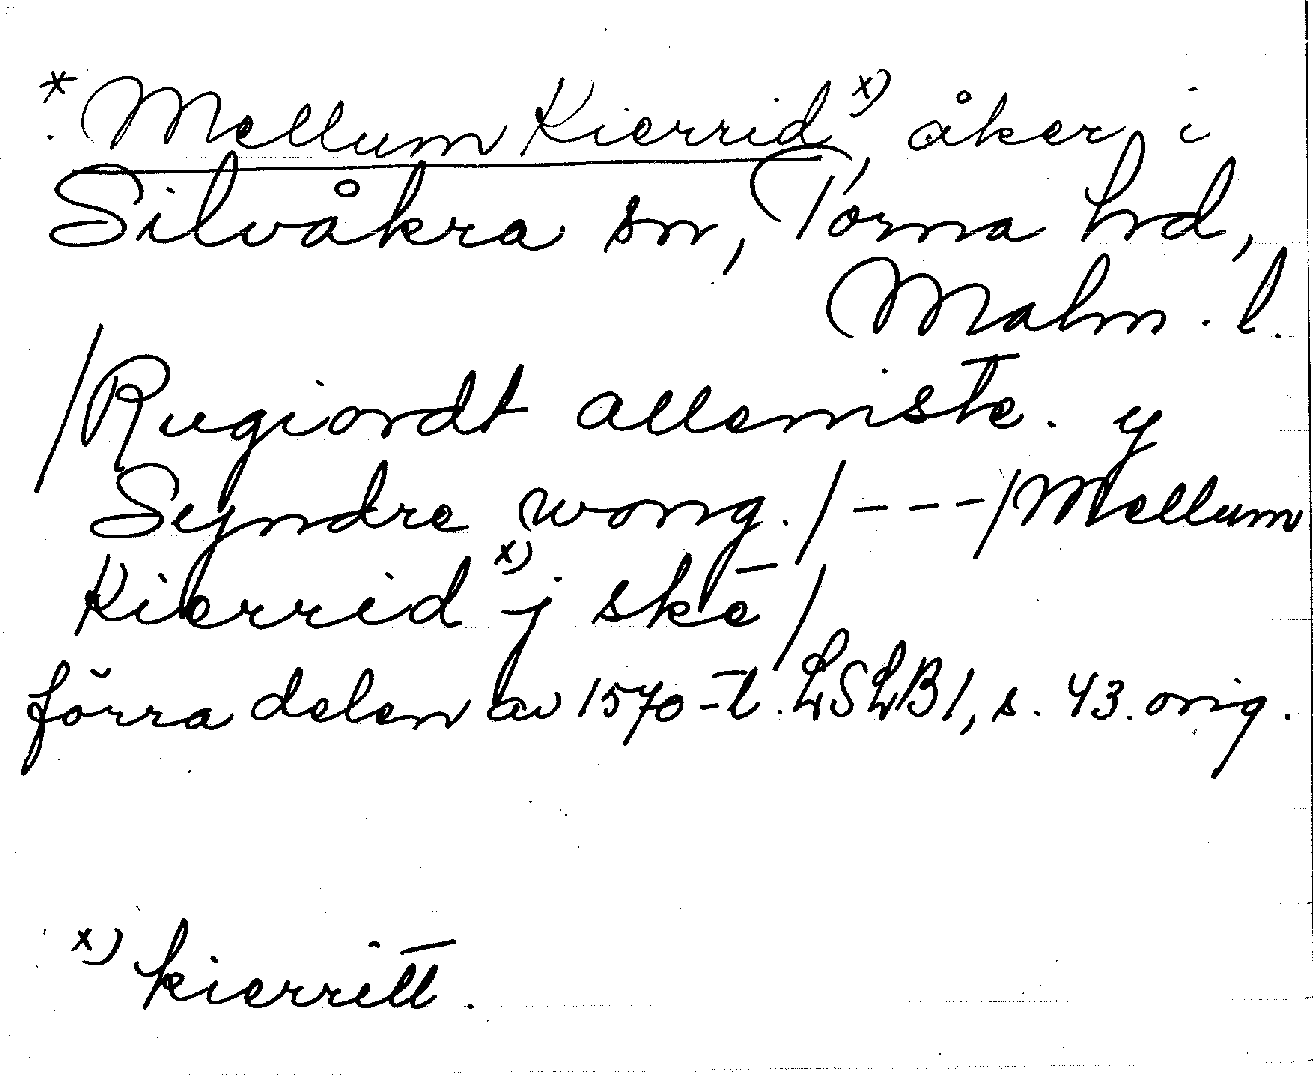 * Mellum Kierrid x), åker i
Silvåkra sn, Torna hd,
Malm. l.
/Rugiordt allemste. y
Syndre wong./---/Mellum
Kierrid x) j skē/
förra delen av 1570-t. LSLB1, s. 43. orig.
x) kierritt.